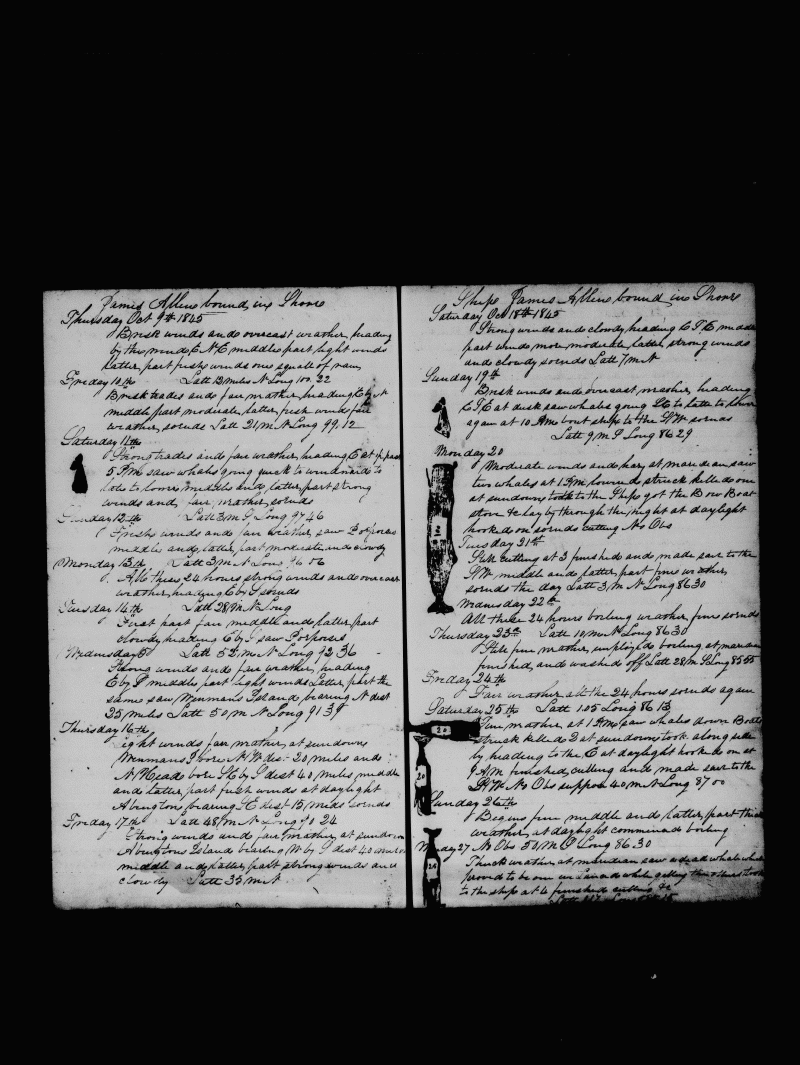 James Allen bound in Shore
Thursday Oct 9th 1845
Brisk winds and overcast weather, heading
by the wind E N E middle part light winds
latter part fresh winds one squall of rain
Friday 10th Latt 13 miles N Long 100.22
Brisk trades and fair weather heading E by N
middle part moderate, latter, fresh wind fair
weather, so ends Latt 21 m N Long 99.12
Saturday 11th
Strong trades and fair weather, heading E at
5 PM saw whales going quick to windward to
late to lower middle and latter part strong
winds and fair weather so ends
Sunday 12th Latt 3 m S Long 97 46
Fresh winds and fair weather saw Porpoises
middle and latter, part moderate and cloudy
Monday 13th Latt 3 m N Long 06
All these 24 hours strong winds and overcast
weather, heading E by S so ends
Tuesday 14th Latt 28 m N Long
First part fair middle and latter part
cloudy heading E by S saw Porpoises
Wednesday Latt 52 m N Long 92 36
Strong winds and fair weather, heading
E by S middle part light winds Latter, part the
same saw Wenmans Island bearing N dist
25 miles Latt 50 m N Long 91 39
Thursday 16th
Light winds fair weather, at sundown
Wenmans I bore N W dist 20 miles and
N Head bore S E by S dist 40 miles middle
and latter, part fresh winds at daylight
Abingtons bearing E dist 15 miles so ends
Friday 17th Latt 48 m N Long 90 24
Strong winds and fair weather, at sundown
Abingtons Island bearing W by S dist 40 miles
middle and latter, part strong winds and
cloudy Latt 33 m N
Ships James Allen bound in Shore
Saturday Oct 18th 1845
Strong winds and cloudy, heading E S E middle
part winds more moderate, latter, strong winds
and cloudy so ends Latt 7 m N
Sunday 19th
Brisk winds and overcast weather, heading
E S E at dusk saw whales going to late to lower
again at 10 AM bout ship to the S W so ends
Latt 9 m S Long 86 29
Monday 20
Moderate winds and hazy at meridian saw
two whales at 1 PM lowered struck killed one
at sundown took to the Ship got the Bow Boat
stove & lay by through the night at daylight
hooked on so ends cutting No Obs
Tuesday 21st
Still cutting at 3 finished and made sail to the
S W middle and latter part fine weather
so ends the day Latt 3 m N Long 86 30
Wednesday 22th
All these 24 hours boiling weather, fine so ends
Thursday 23th Latt 10 m N Long 86 30
Still fine weather, employed boiling at meridian
finished, and washed off Latt 28 m S Long 85 55
Friday 24th
Fair weather all the 24 hours so ends again
Saturday 25th Latt 105 Long 86 13
20
Fine weather, at 1 PM saw whales down Boats
struck killed 2 at sundown took along side
20
by heading to the E at daylight hooked on at
9 AM finished cutting and made sail to the
S W No Obs suppose 40 m N Long 87 00
Sunday 26th
Begins fine middle and latter, part thick
weather, at daylight commenced boiling
Monday 27 No Obs 50 m S Long 86.30
Thick weather at meridian saw a dead whale which
proved to be one we while getting the others took
to the ship at 4 finished cutting &c